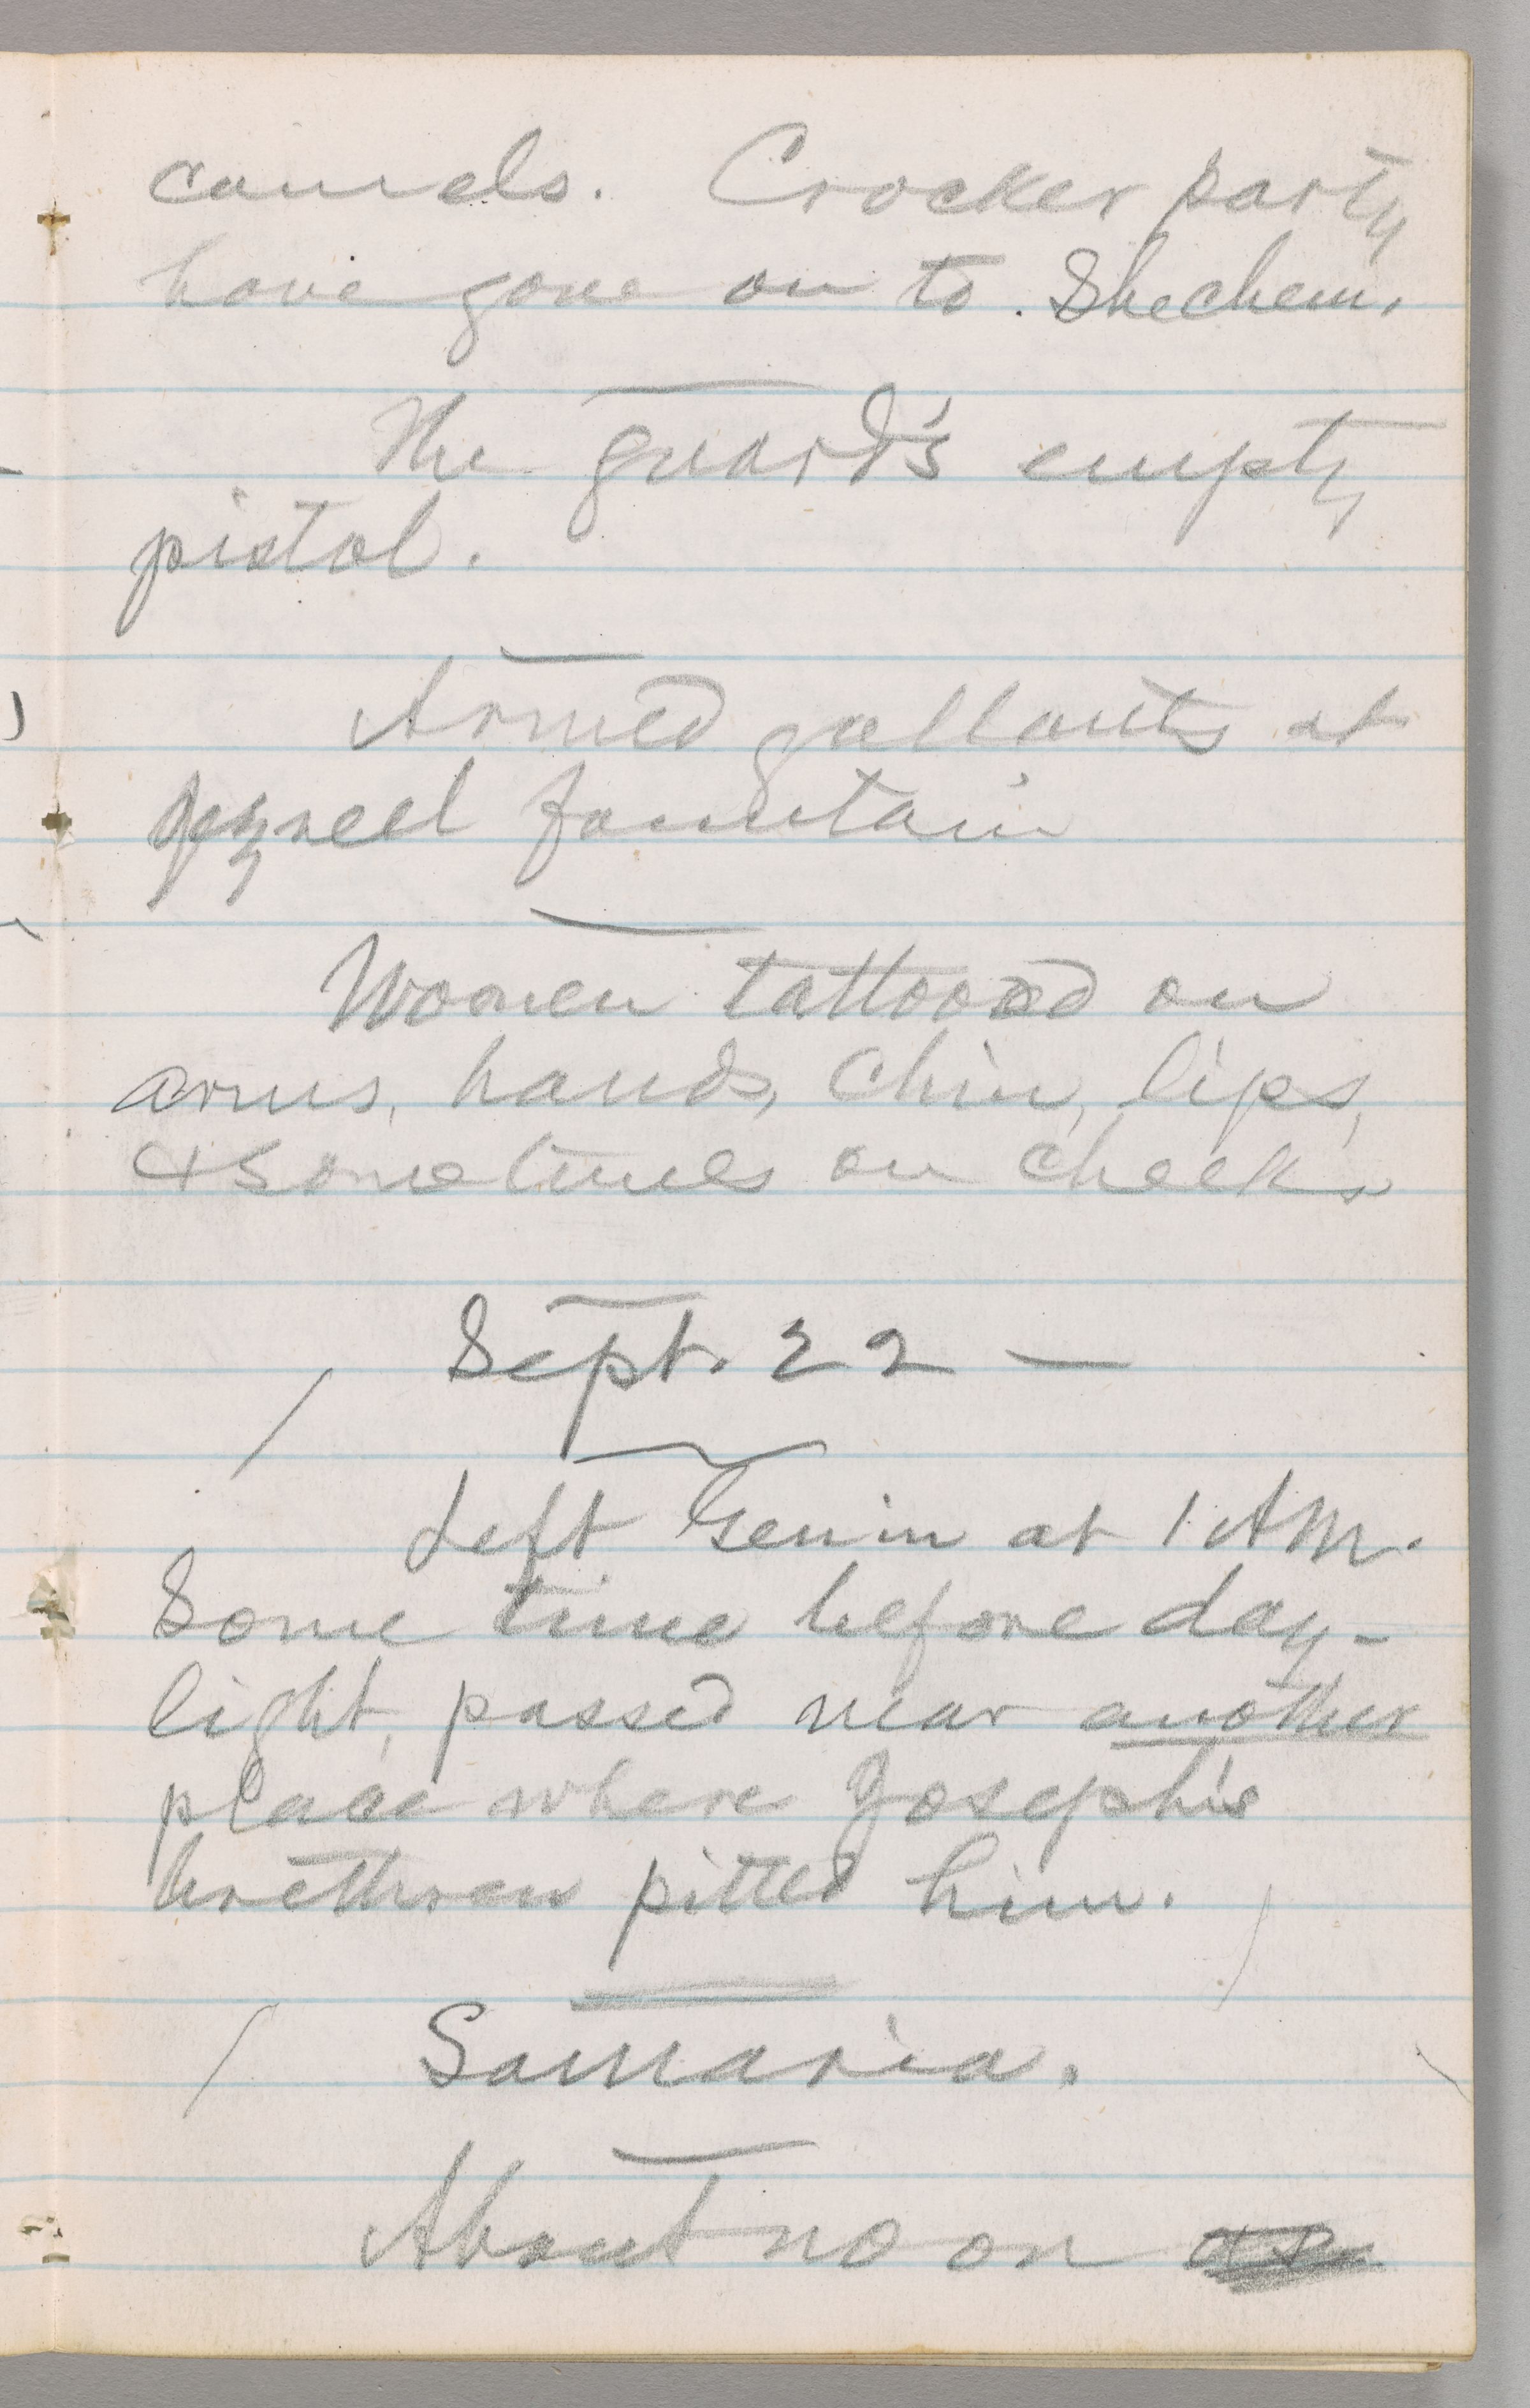 camels. Crocker party
have gone on to Shechem.
The guard's empty
pistol.
Armed gallants at
Jezreel fountain
Women tattooed on
arms, hands, chin, lips,
& sometimes on cheeks
Sept. 22 —
Left Genin at 1 AM.
Some time before day-
light, passed near another
place where Joseph's
brethren pitted him.
Samaria.
About noon